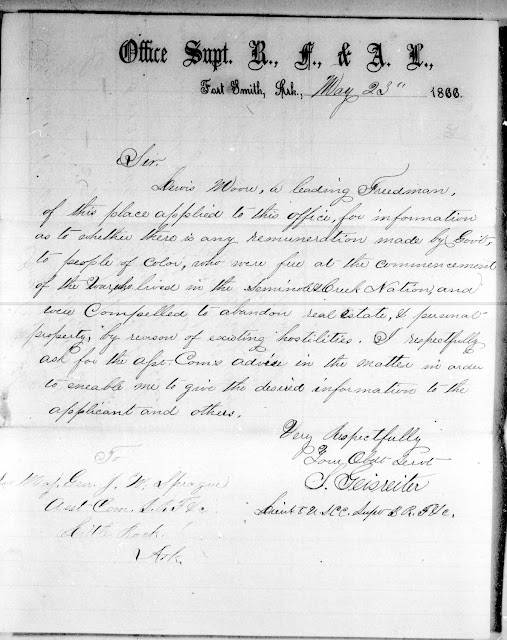 Office Supt. R., F., & A. L.,
Fort Smith, Ark., May 23" 1866.
Sir.
Lewis Moore, a leading Freedman,
of this place applied to this office, for information
as to whether there is any remuneration made by Govt,
to people of color, who were free at the commencement
of the War, who lived in the Seminole & Creek Nation, and
were Compelled to abandon real estate, & personal
property, by reason of existing hostilities. I respectfully
ask for the asst. Com's advice in the matter in order
to eneable me to give the desired information to the
applicant and others.
Very Respectfully
Your Obdt Servt
S. Geisreiter
Lieut U.S.C.C. Supt B R. F &c.
To
Maj. Gen. J. W. Sprague
Asst Com.
Little Rock
Ark.